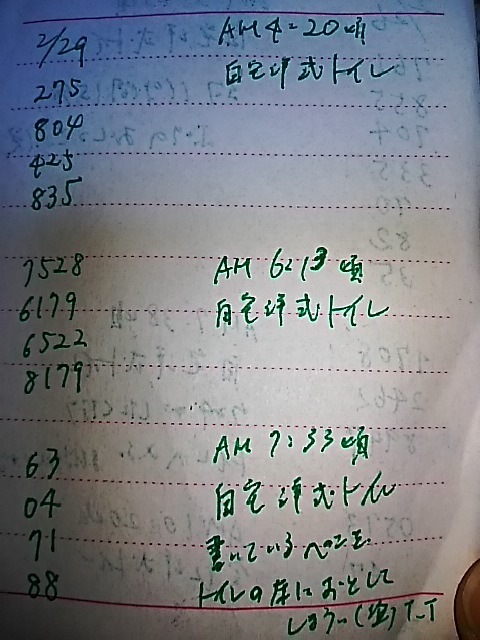 2/29 AM 4:20頃
275 自宅洋式トイレ
804
425
835
7528 AM 6:13頃
6179 自宅洋式トイレ
6522
8179
63 AM 7:33頃
04 自宅洋式トイレ
71 書いているペンを
88 トイレの床におとして
しまう…(泣)T_T